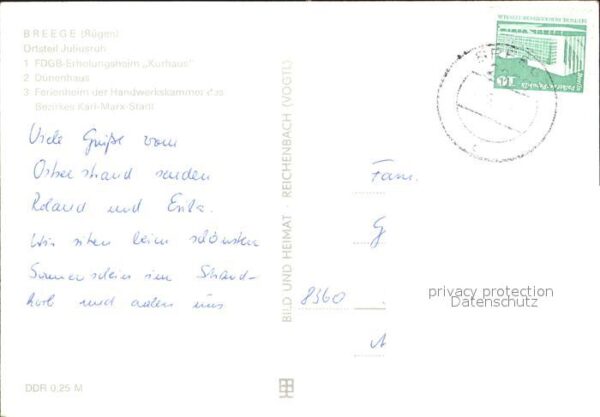 BREEGE (Rügen)
Ortsteil Juliusruh
1 FDGB-Erholungsheim „Kurhaus"
2 Dünenhaus
3 Ferienheim der Handwerkskammer des
Bezirkes Karl-Marx-Stadt
Viele Grüße vom
Ostseestrand senden
Roland und Erika.
Wir sitzen beim schönsten
Sonnenschein im Strand-
korb und aalen uns
DDR 0,25 M
BILD UND HEIMAT · REICHENBACH (VOGTL)
10
BREEGE
Fam.
G
8360
A
privacy protection
Datenschutz